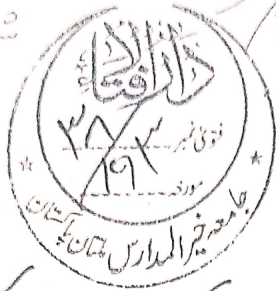 دارالافتاء
فتویٰ نمبر
مورخہ
جامعہ خیر المدارس ملتان پاکستان